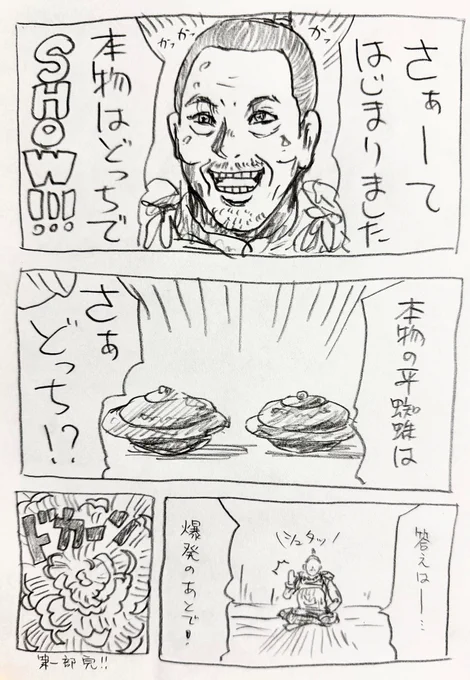 さぁーて
はじまりました
かっ
かっ
かっ
本物はどっちで
SHOW!!!
本物の平蜘蛛は
さぁ
どっち!?
答えはー…
シュタッ
爆発のあとで!
ドカーン
第一部完!!